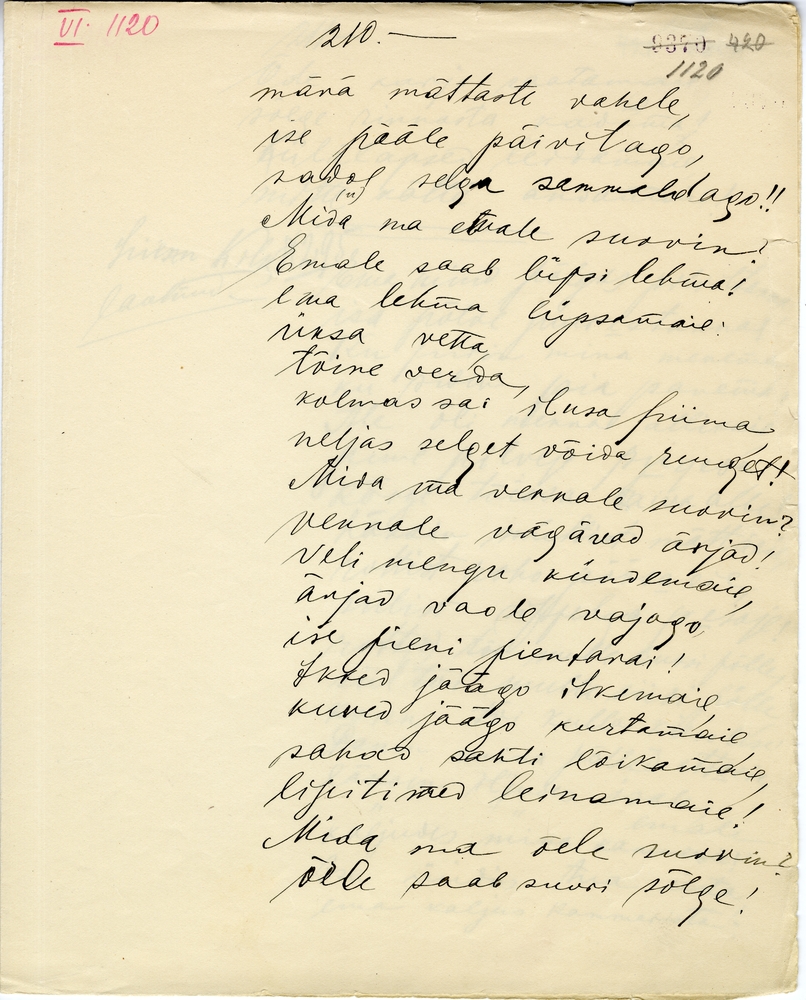 VI. 1120
210.—
9370 420
1120
märä mättaste vahele,
ise pääle päivitago,
sadol selga sammaldago!!
(u)
Mida ma emale suovin?
Emale saab lüpsi lehma!
Ema lehma lüpsamaie:
üksa vetta,
tõine verda,
kolmas sai ilusa piima,
neljas selget võida
Mida ma vennale suovin?
vennale vägävad ärjad!
Veli mengu kündemaie,
ärjad vaole vajago,
ise pieni pientarai!
Ikked jäägo itkemaie,
kured jäägo kurtamaie
sahad sahti lõikamaie,
lipitimed leinamaie!
Mida ma õele suovin?
õele saab suuri sõlge!